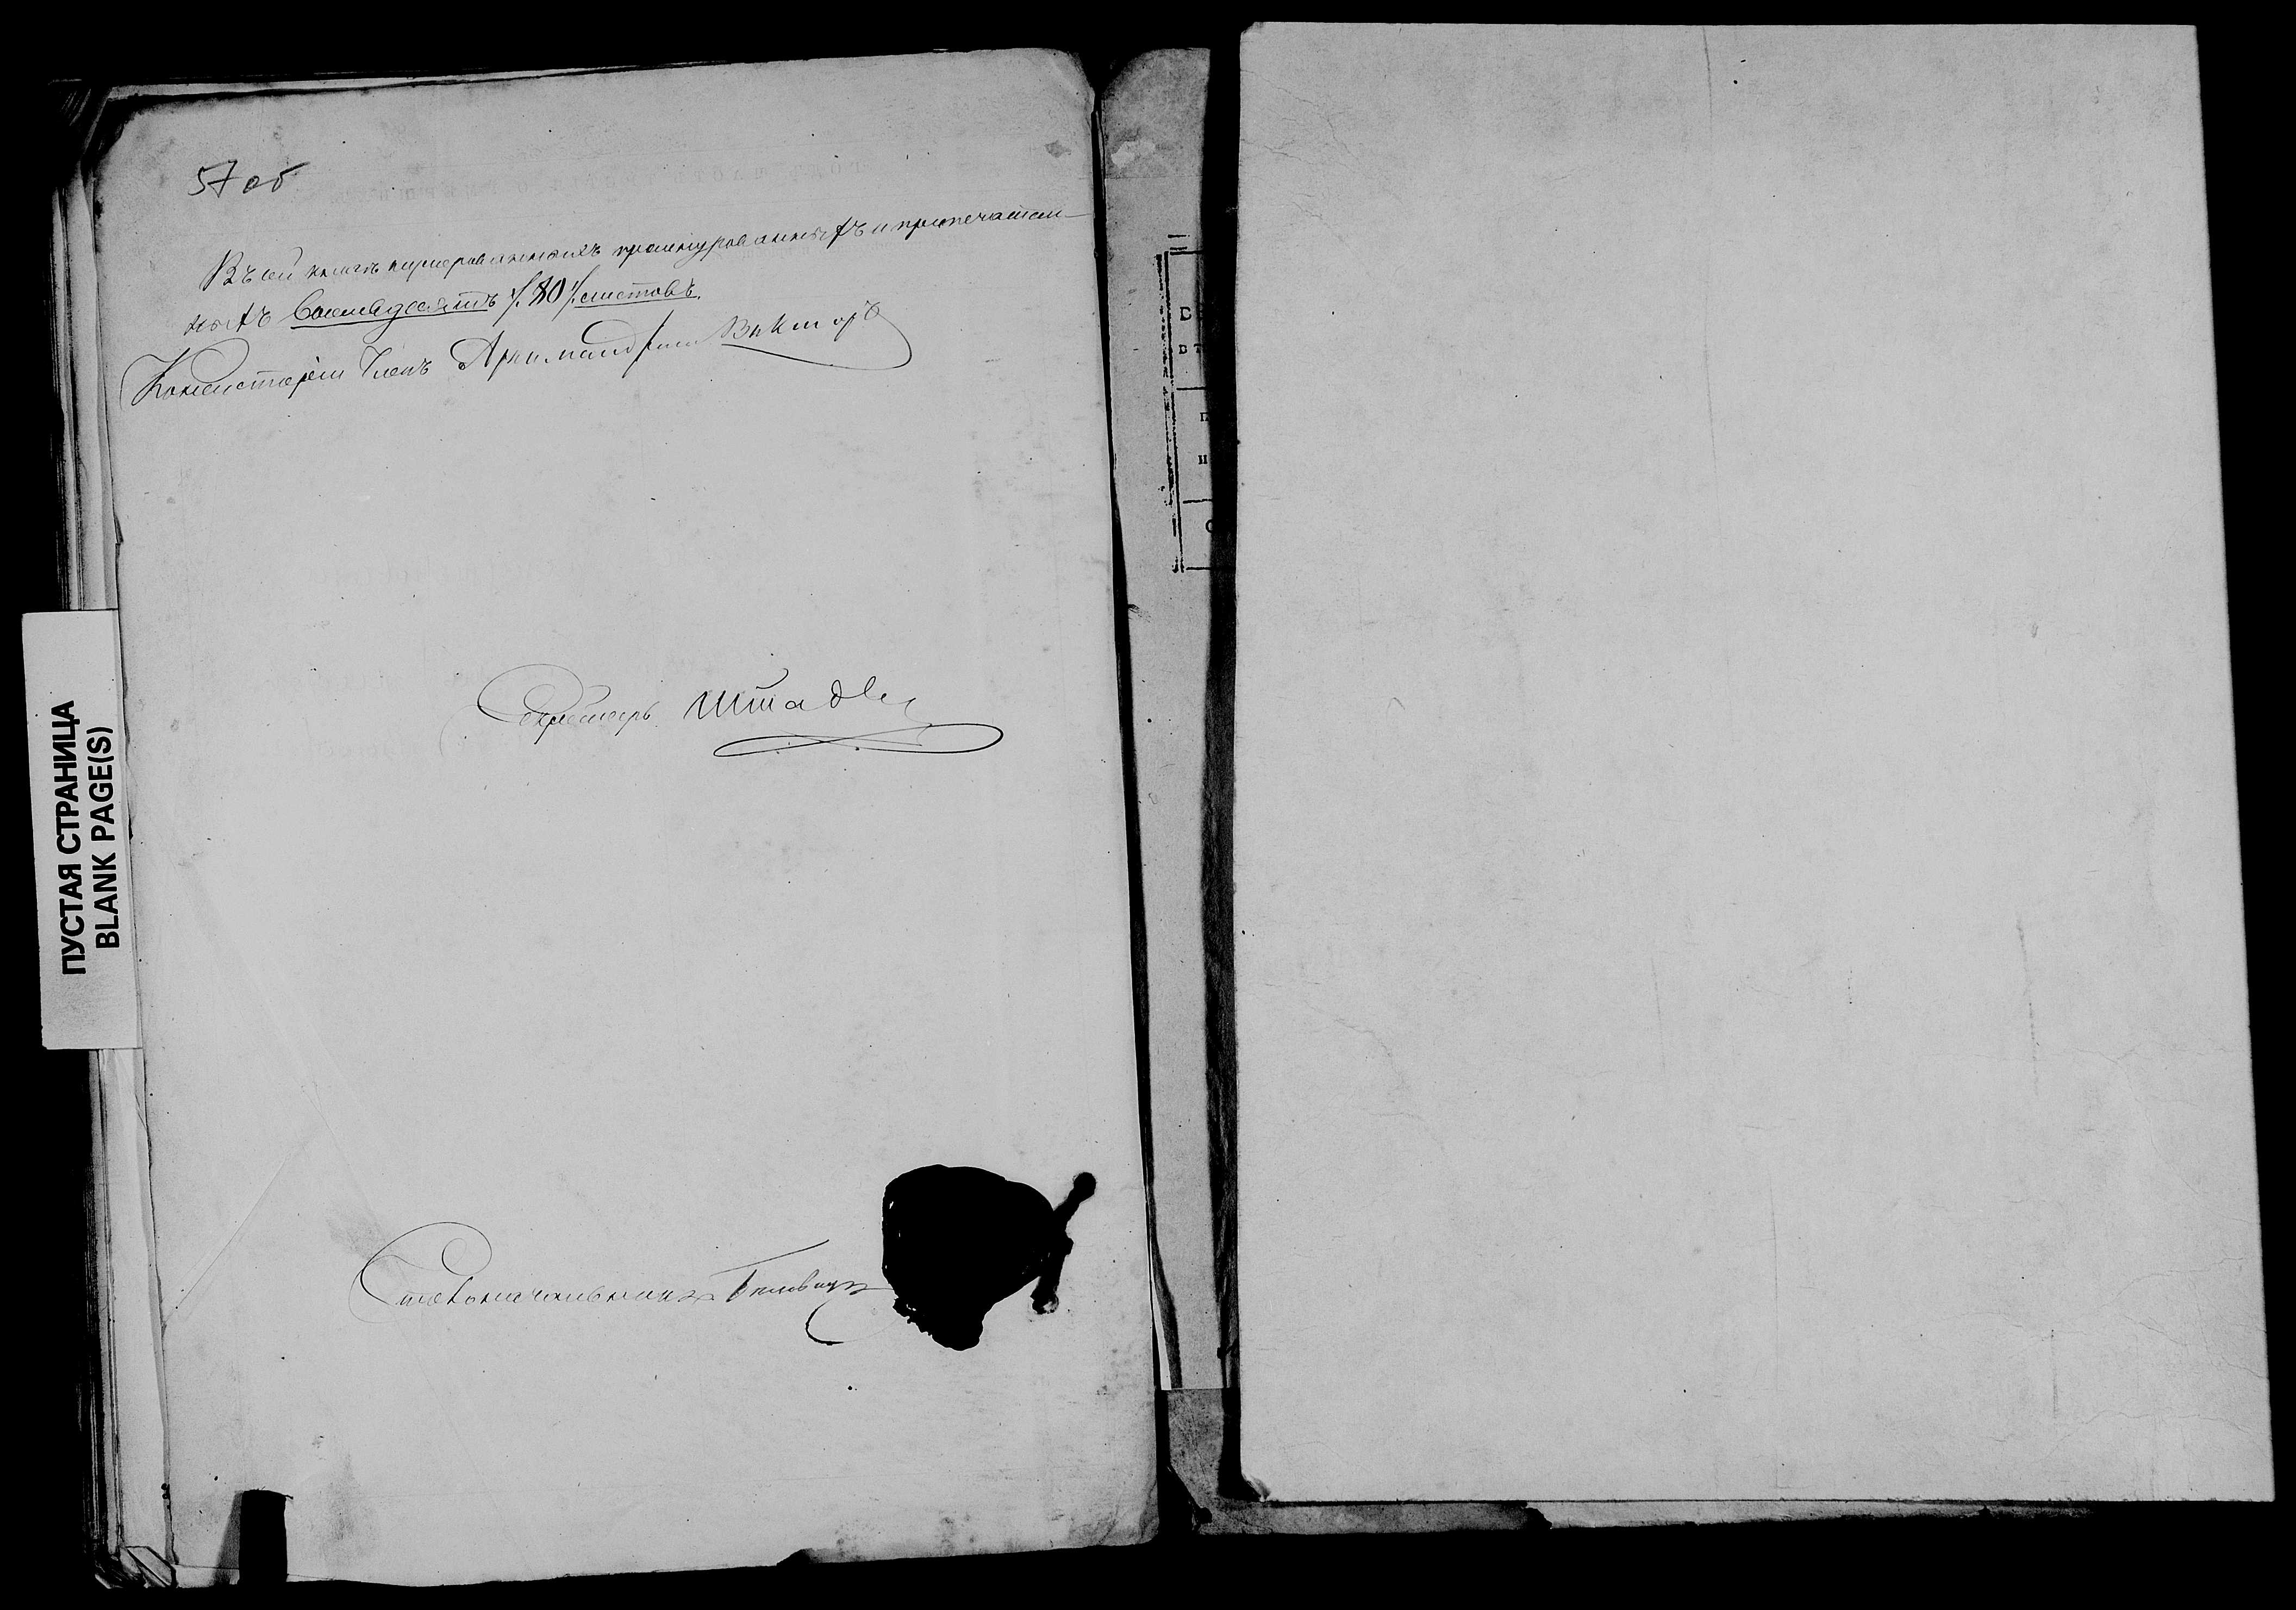 57 об
Въ сей книгѣ нумерованныхъ прошнурованныхъ и припечатан-
ныхъ восемьдесятъ /80/ листовъ.
Консисторіи Членъ Архимандритъ Викторъ
Секретарь
Столоначальникъ
ПУСТАЯ СТРАНИЦА
BLANK PAGE(S)